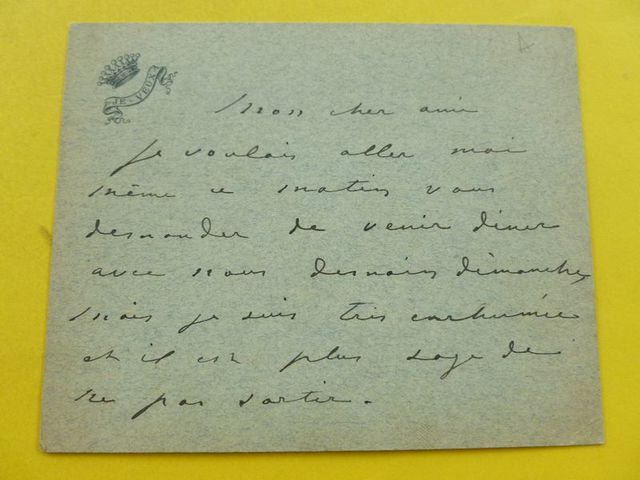 JE VEUX
Mon cher ami
Je voulais aller moi
même ce matin vous
demander de venir diner
avec nous demain dimanche,
mais je suis très enrhumée
et il est plus sage de
ne pas sortir.